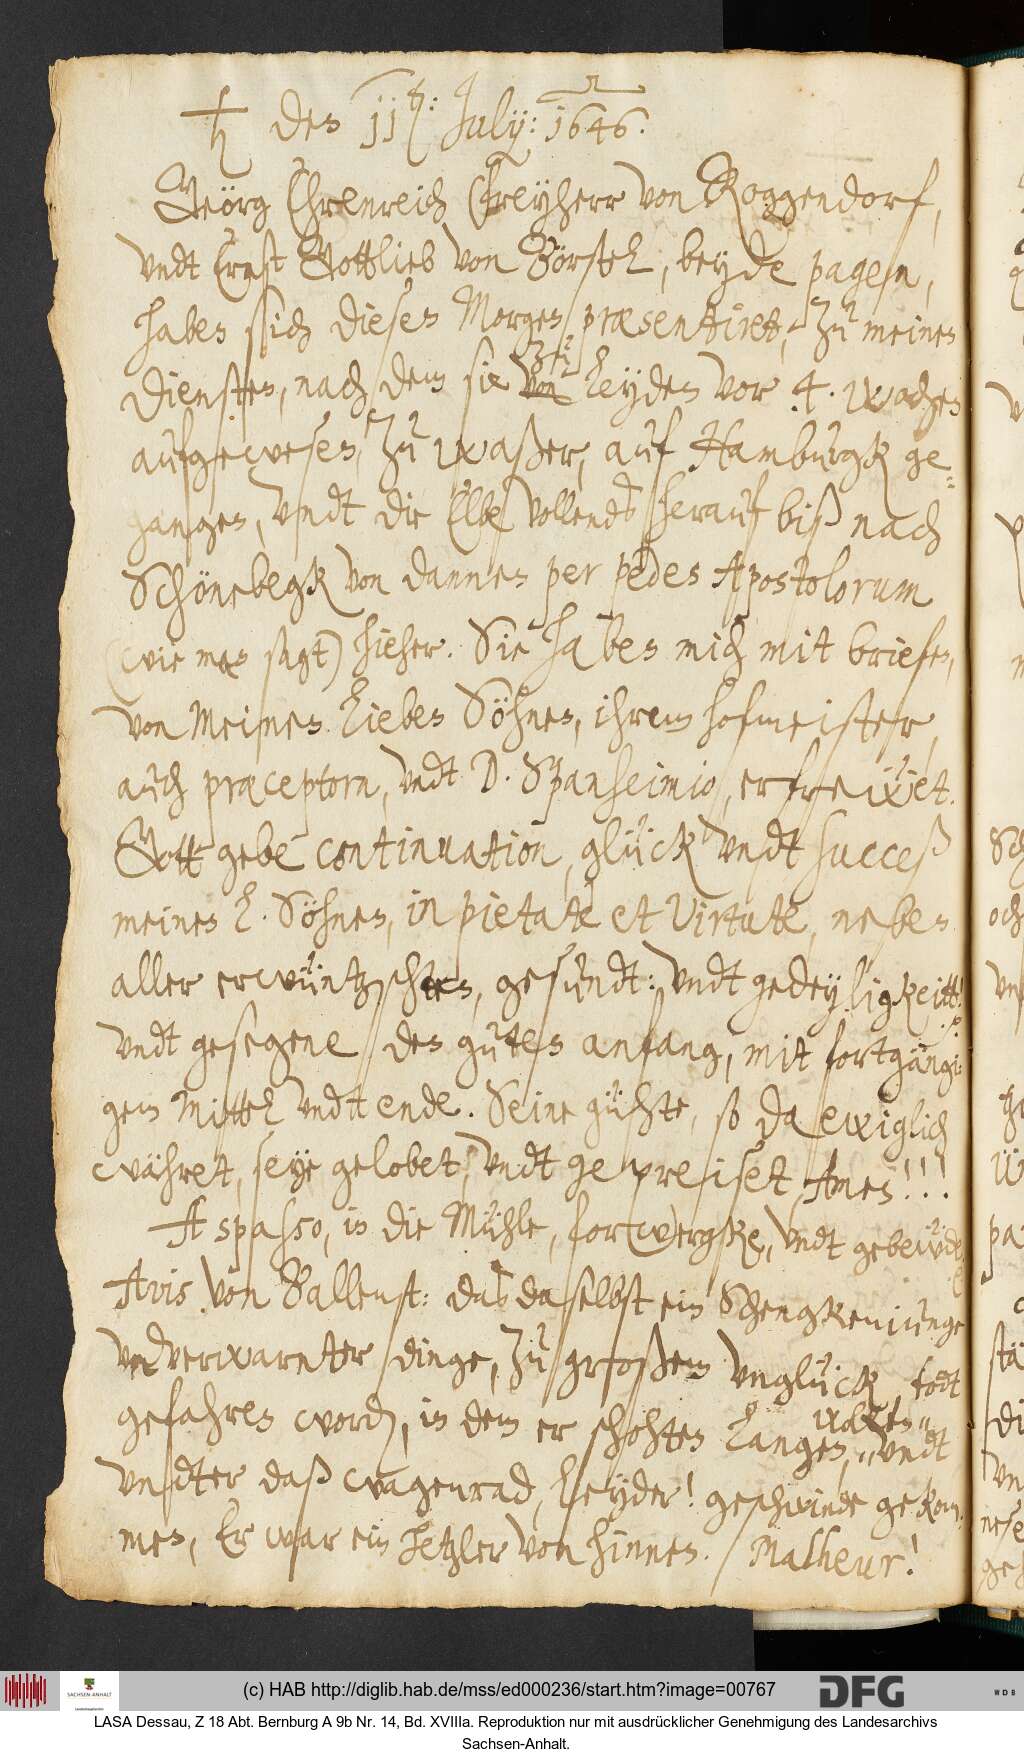 ♄ den 11ten: July: 1646.
Geörg Ehrenreich Freyherr von Roggendorf,
vndt Ernst Gottlieb von Börstel, beyde pagen,
haben sich diesen Morgen præsentiret, zu meinen
diensten, nach dem sie zu Leyden vor 4. wochen
aufgewesen, zu waßer, auf Hamburgk ge=
gangen, vndt die Elbe vollends herauf biß nach
Schönebegk von dannen per pedes Apostolorum
(wie man sagt) hieher. Sie haben mich mit briefen,
von Meinen lieben Söhnen, ihrem hofmeister,
auch præceptorn, vndt D. Spanheimio, erfreẅet.
Gott gebe continuation, glück vndt succeß
meinen l. Söhnen, in pietate et virtute, neben
aller erwüntzschten, gesundt: vndt gedeyligkeitt!
vndt gesegene den guten anfang, mit fortgängi-
gem Mittel vndt ende. Seine gühte, so da ewiglich
währet, seye gelobet, vndt gepreiset, Amen!!!
A spasso, in die Mühle, forwergke, vndt gebeüde
Avis von Ballenst: daß daselbst ein Schengkenjunge
vnverwarnter dinge, zu großem vnglück, todt
gefahren word, in dem er schohten langen wollen, vndt
vndter daß wagenrad, leyder! geschwinde gekom-
men, Er war ein hetzler von hinnen. Malheur!
(c) HAB http://diglib.hab.de/mss/ed000236/start.htm?image=00767
SACHSEN-ANHALT
DFG
WDB
LASA Dessau, Z 18 Abt. Bernburg A 9b Nr. 14, Bd. XVIIIa. Reproduktion nur mit ausdrücklicher Genehmigung des Landesarchivs
Sachsen-Anhalt.